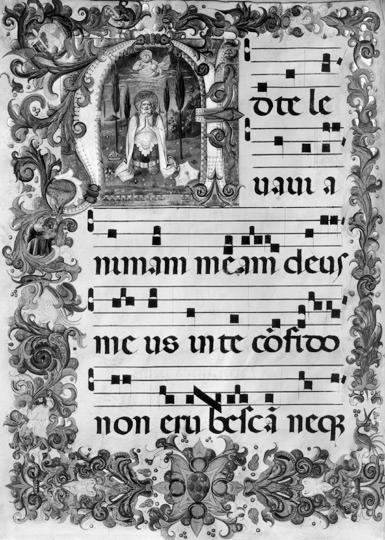 A dte le
vavi a
nimam meam deus
me us in te cōfido
non erubescā neqꝫ